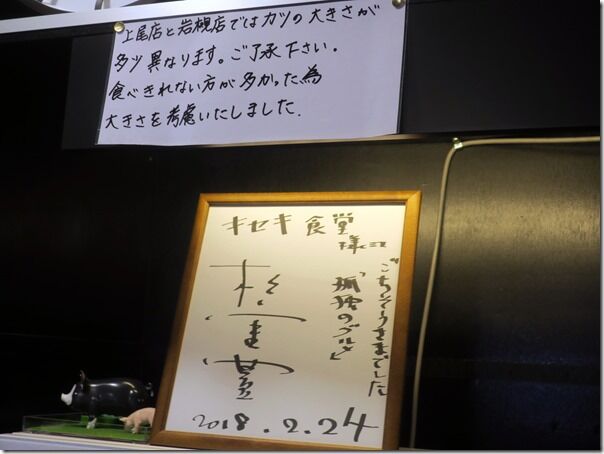 上尾店と岩槻店ではカツの大きさが
多少異なります。ご了承下さい。
食べきれない方が多かった為
大きさを考慮いたしました.
キセキ食堂
様江
ごちそうさまでした
「孤独のグルメ」
2018.2.24